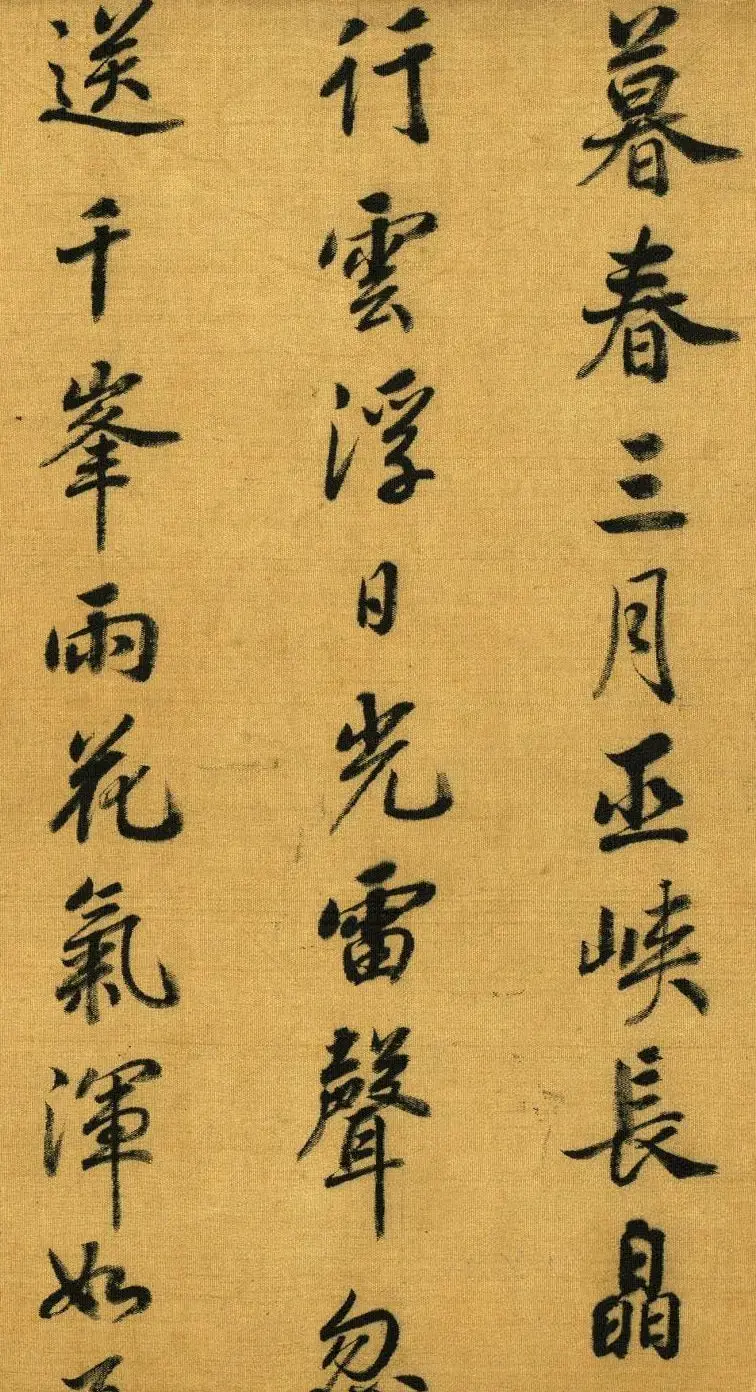 暮春三月巫峽長皛
行雲浮日光雷聲忽
送千峯雨花氣渾如